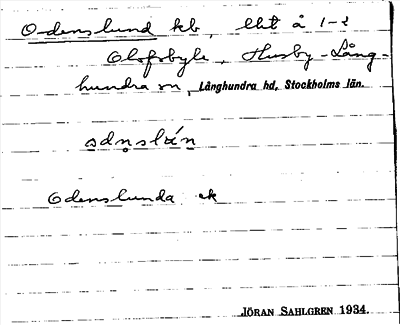 Odenslund kb, lht å 1-2
Olofsbyle, Husby-Lång-
hundra sn, Långhundra hd, Stockholms län.
Odenslunda ek
JÖRAN SAHLGREN 1934.